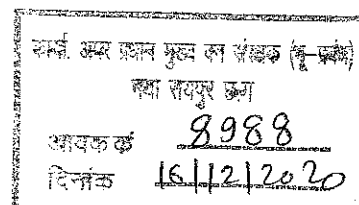 कार्या. अपर प्रधान मुख्य वन संरक्षक (भू-प्रबंध)
नवा रायपुर छ.ग.
आवक क्रं 8988
दिनांक 16/12/2020